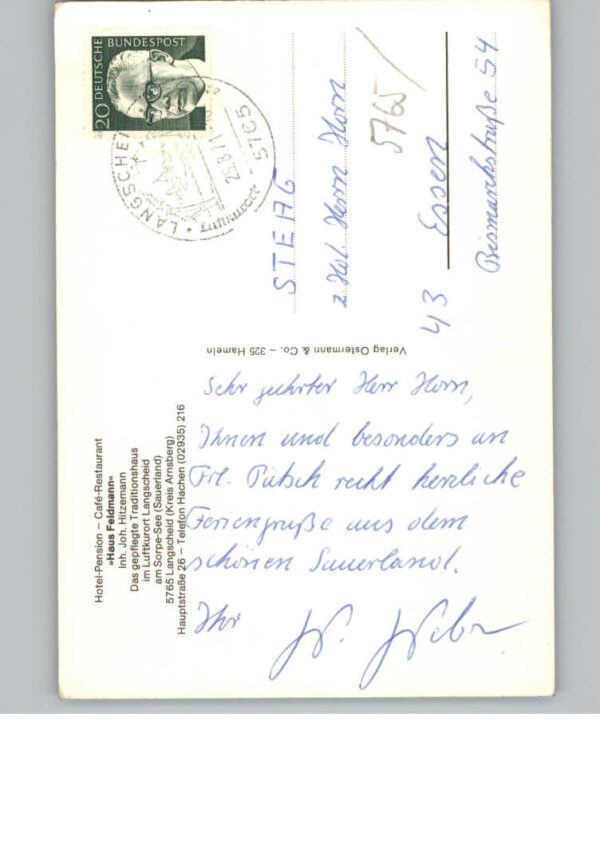 Hotel-Pension – Café-Restaurant
»Haus Feldmann«
Inh. Joh. Hitzemann
Das gepflegte Traditionshaus
im Luftkurort Langscheid
am Sorpe-See (Sauerland)
5765 Langscheid (Kreis Arnsberg)
Hauptstraße 26 – Telefon Hachen (02935) 216
Sehr geehrter Herr Horn,
Ihnen und besonders an
Frl. Pütsch recht herzliche
Feriengrüße aus dem
schönen Sauerland.
Ihr W. Weber
Verlag Ostermann & Co. – 325 Hameln
20 DEUTSCHE BUNDESPOST
LANGSCHEI
5765
Luftkurort
5765/
STEAG
z Hd. Herrn Horn
43 Essen
Bismarckstraße 54